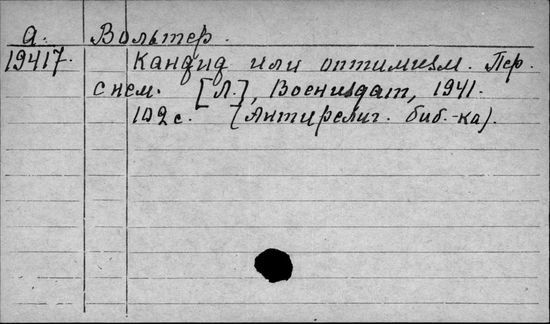 А. Вольтер.
19417. Кандид или оптимизм. Пер.
с нем. [Л.], Воениздат, 1941.
102 с. (Антирелиг. биб-ка).